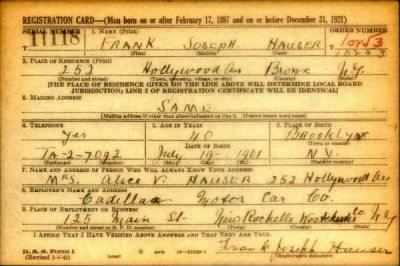 REGISTRATION CARD—(Men born on or after February 17, 1897 and on or before December 31, 1921)
SERIAL NUMBER 1. NAME (Print) ORDER NUMBER
11118 FRANK JOSEPH HAUSER 10253
(First) (Middle) (Last)
2. PLACE OF RESIDENCE (Print)
252 Hollywood Av Bronx N.Y.
(Number and street) (Town, township, village, or city) (County) (State)
[THE PLACE OF RESIDENCE GIVEN ON THE LINE ABOVE WILL DETERMINE LOCAL BOARD
JURISDICTION; LINE 2 OF REGISTRATION CERTIFICATE WILL BE IDENTICAL]
3. MAILING ADDRESS
SAME
(Mailing address if other than place indicated on line 2. If same insert word same)
4. TELEPHONE 5. AGE IN YEARS 6. PLACE OF BIRTH
Yes 40 Brooklyn
DATE OF BIRTH
TA-2-7092 July 19 1901 N.Y.
7. NAME AND ADDRESS OF PERSON WHO WILL ALWAYS KNOW YOUR ADDRESS
Mrs. Alice V. HAUSER 252 Hollywood Av
8. EMPLOYER'S NAME AND ADDRESS
Cadillac Motor Car Co.
9. PLACE OF EMPLOYMENT OR BUSINESS
125 Main St New Rochelle Westchester Co N.Y.
(Number and street or R. F. D. number) (Town) (County) (State)
I AFFIRM THAT I HAVE VERIFIED ABOVE ANSWERS AND THAT THEY ARE TRUE.
D. S. S. Form 1
(Revised 1-1-42) Frank Joseph Hauser
(Registrant's signature)